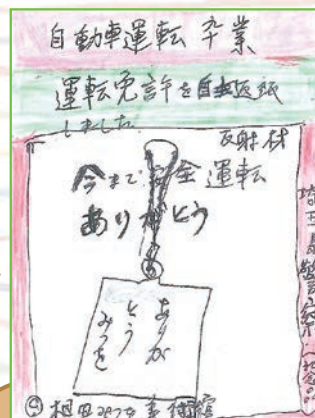 自動車運転 卒業
運転免許を自主返納
しました
反射材
今まで安全運転
ありがとう
ありが
とう
みつを
埼玉県警察